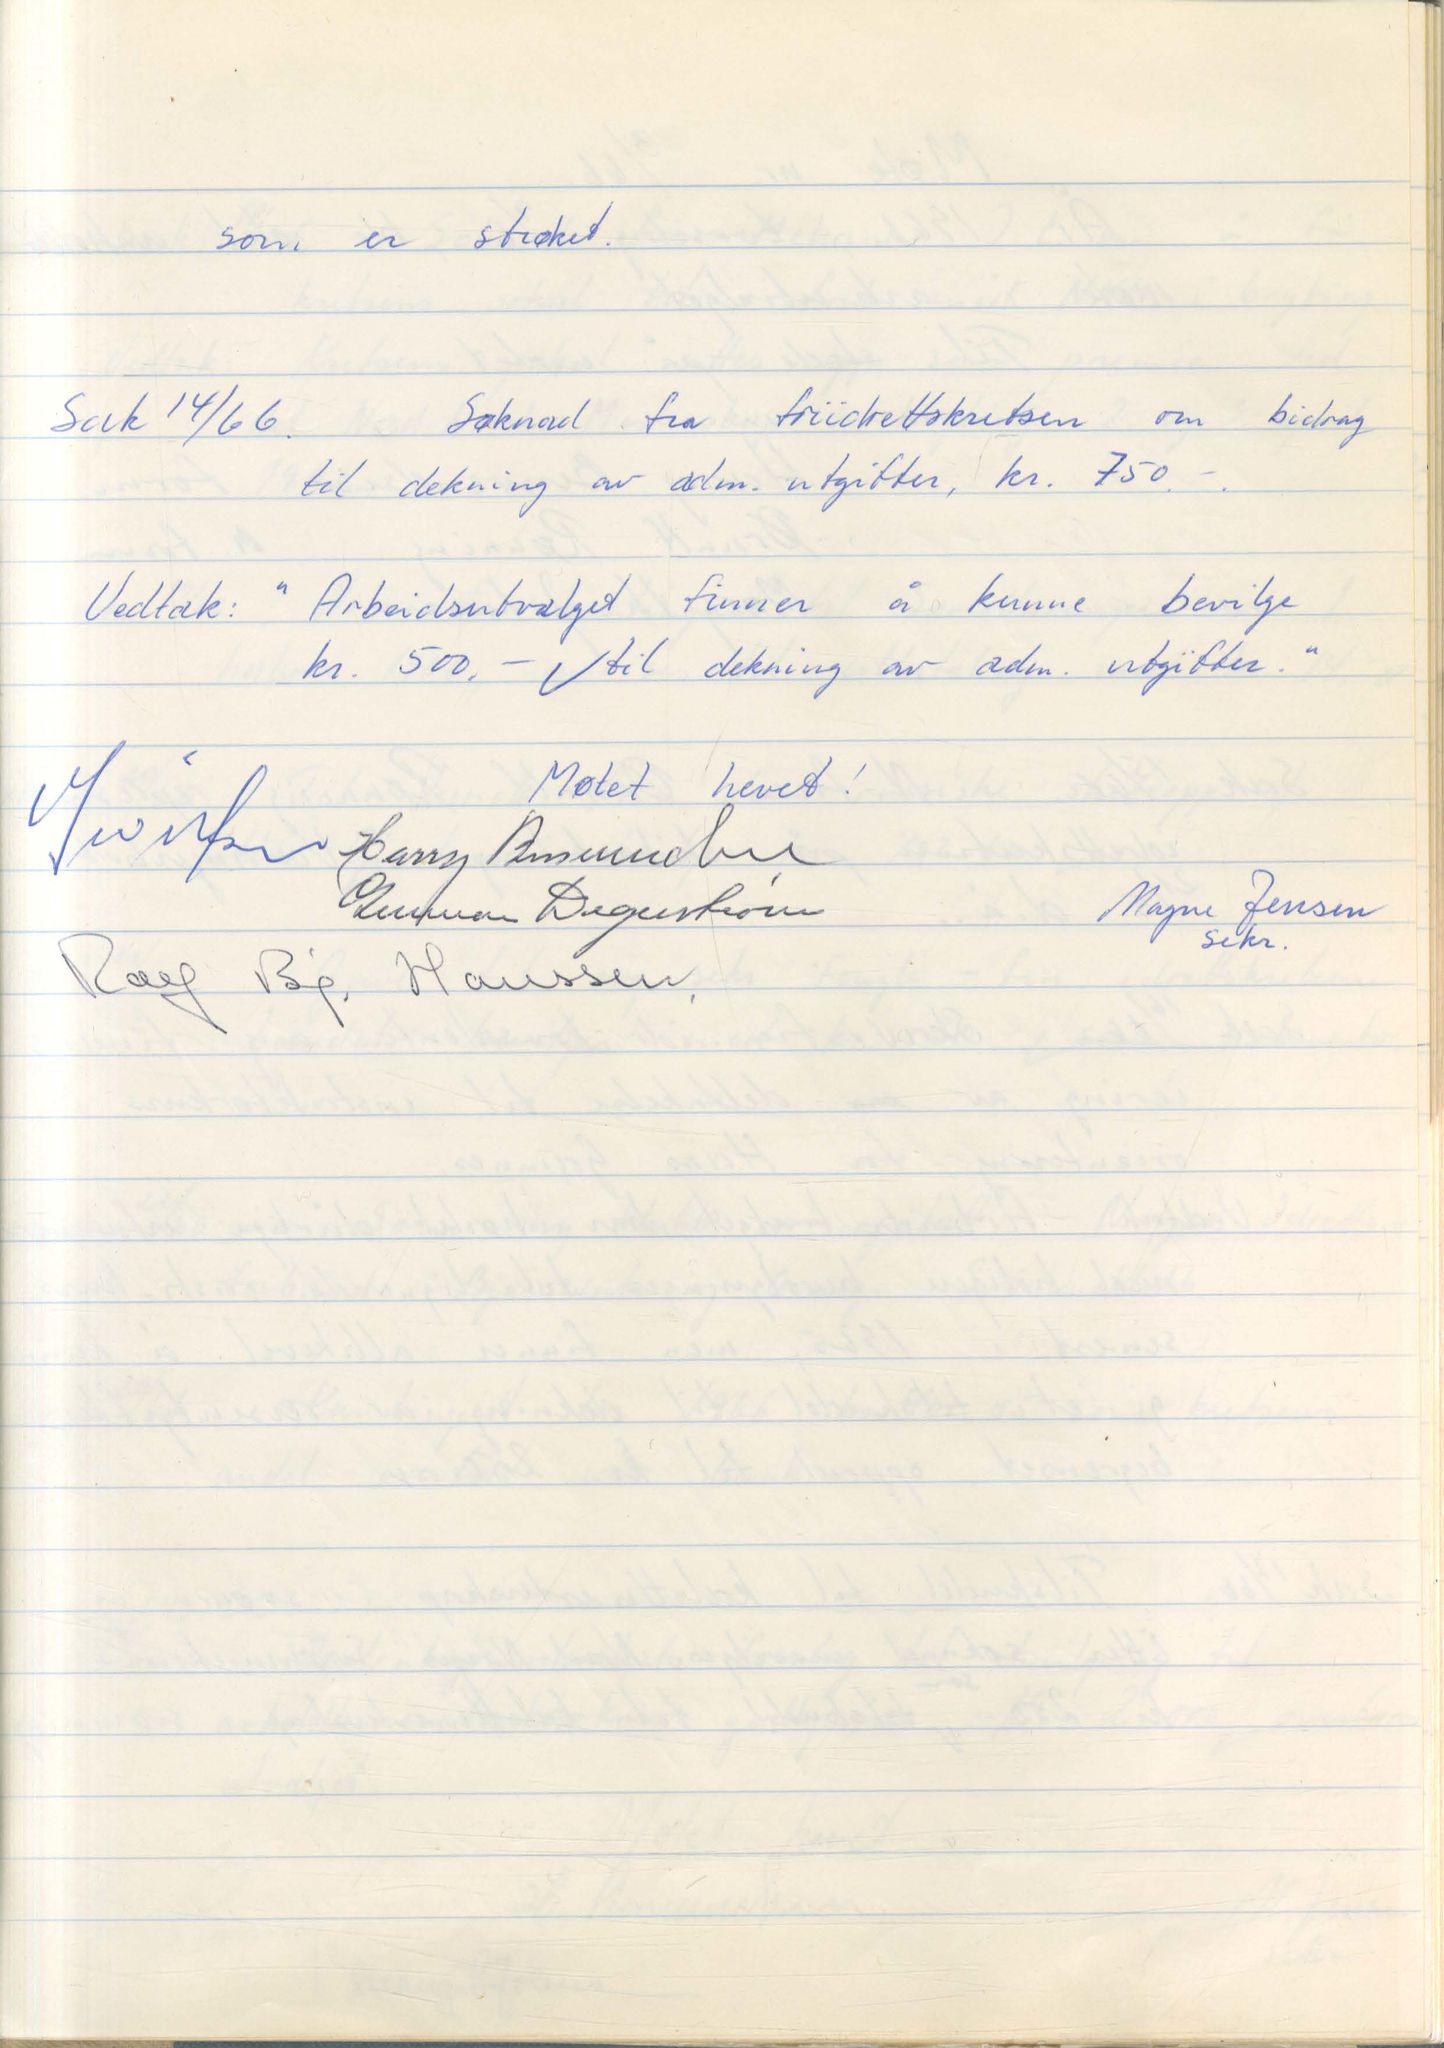 som er strøket.
Sak 14/66. Søknad fra friidrettskretsen om bidrag
til dekning av adm. utgifter, kr. 750.-.
Vedtak: "Arbeidsutvalget finner å kunne bevilge
kr. 500.- til dekning av adm. utgifter."
Møtet hevet!
Harry
Gunnar Degerstrøm
Magne Jensen
sekr.
Rolf Bj. Hanssen.